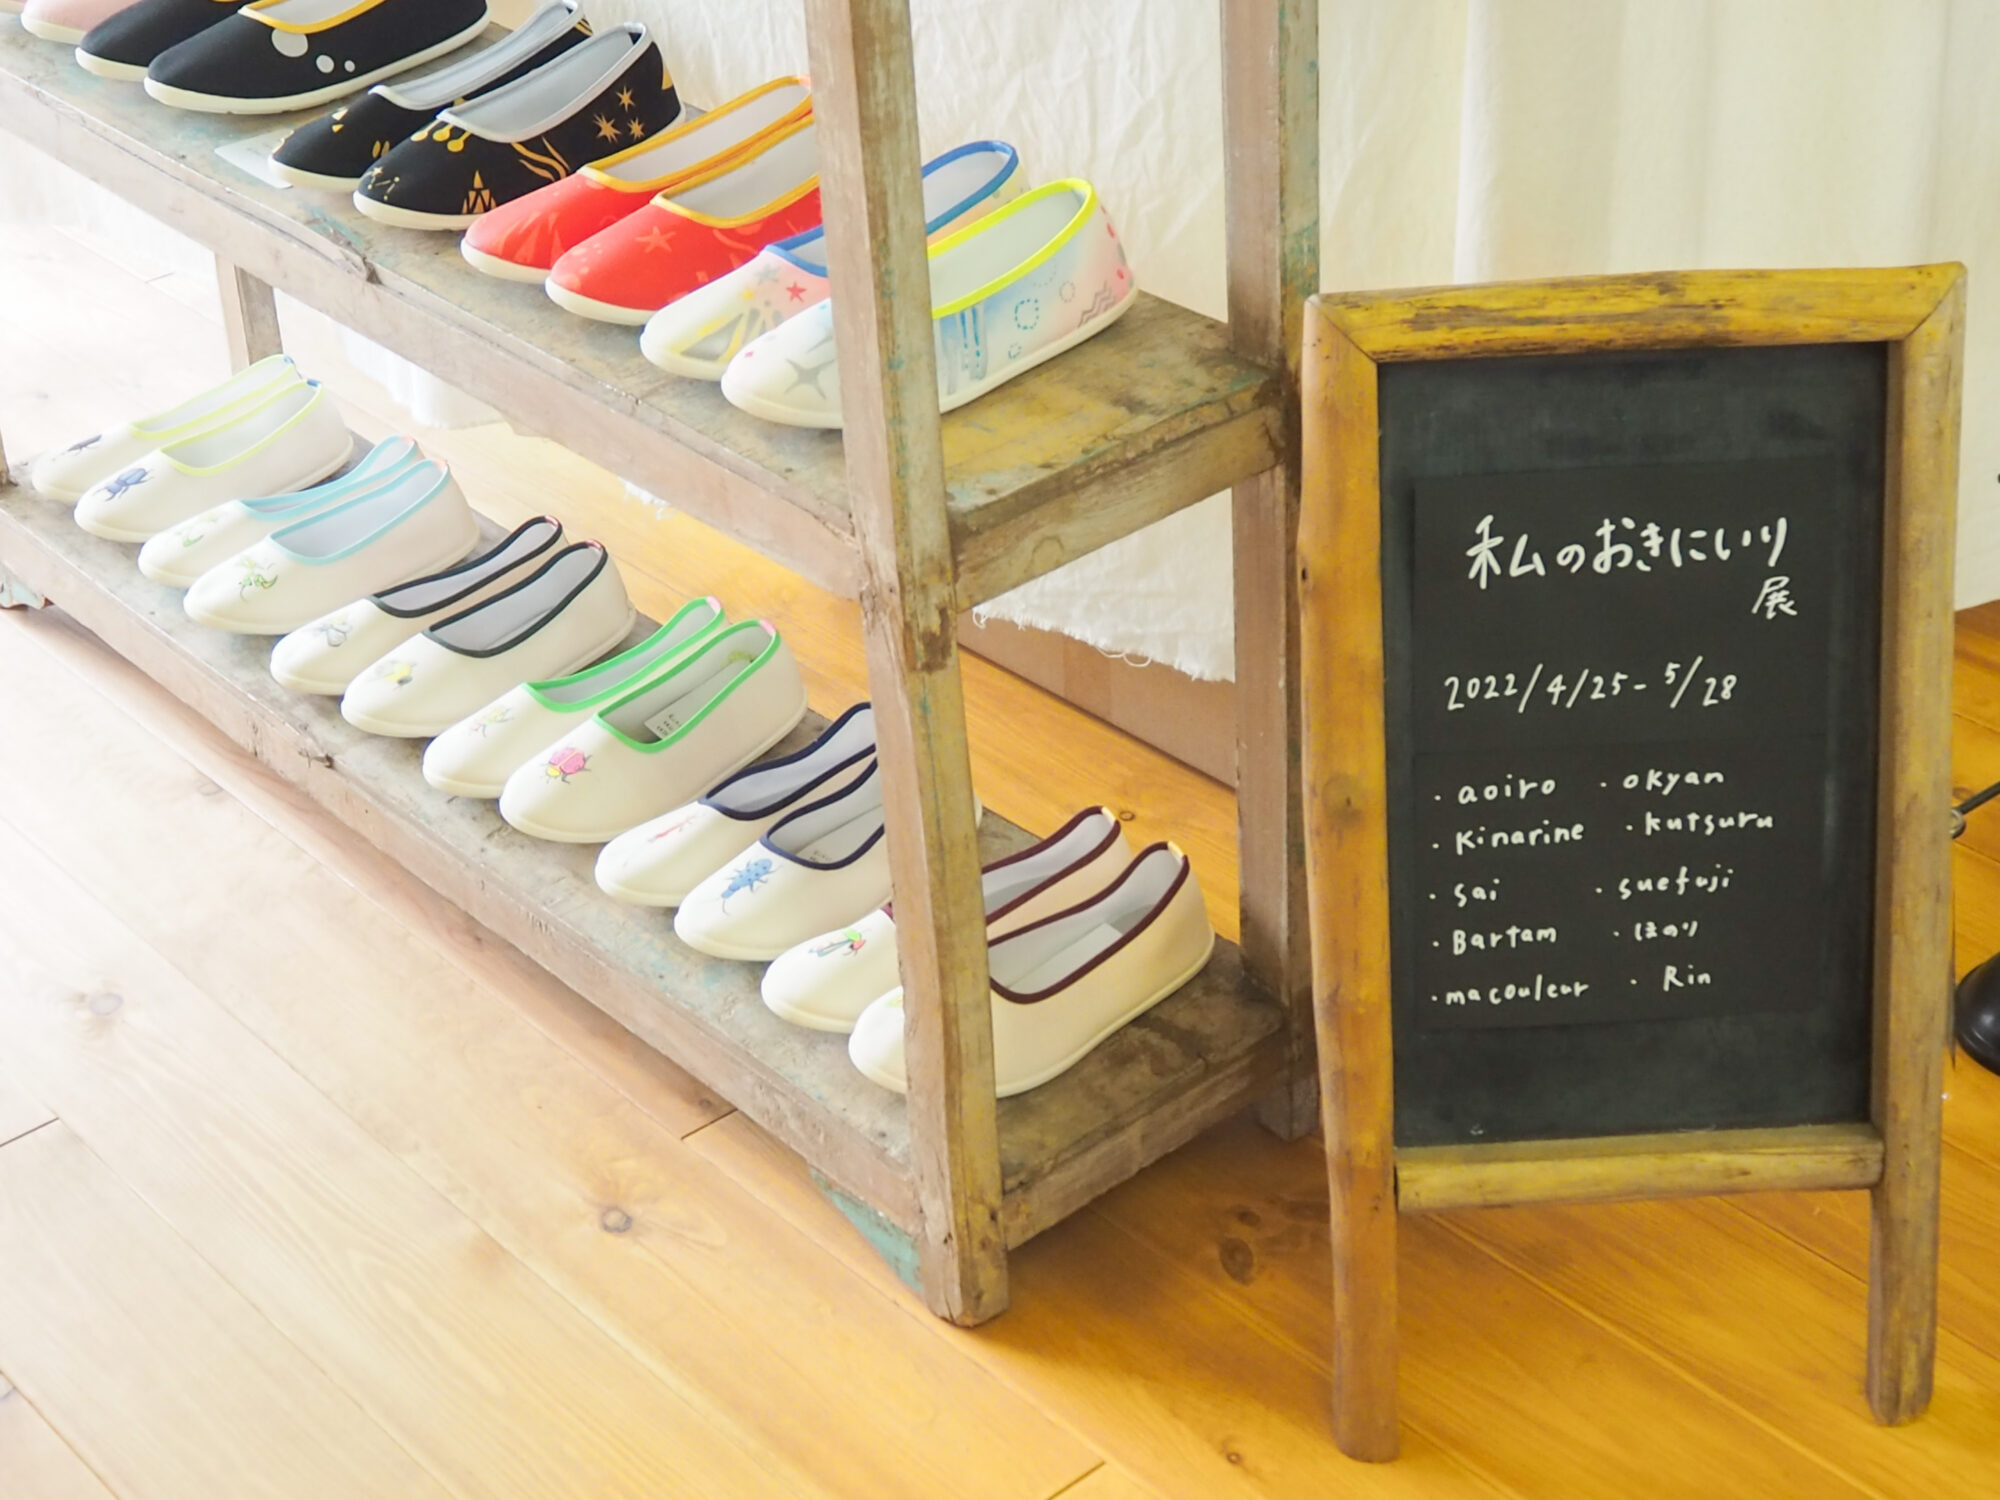 私のおきにいり
展
2022/4/25- 5/28
・aoiro ・okyan
・Kinarine ・kutsuru
・sai ・suefuji
・Bartam ・ほのり
・macouleur ・Rin